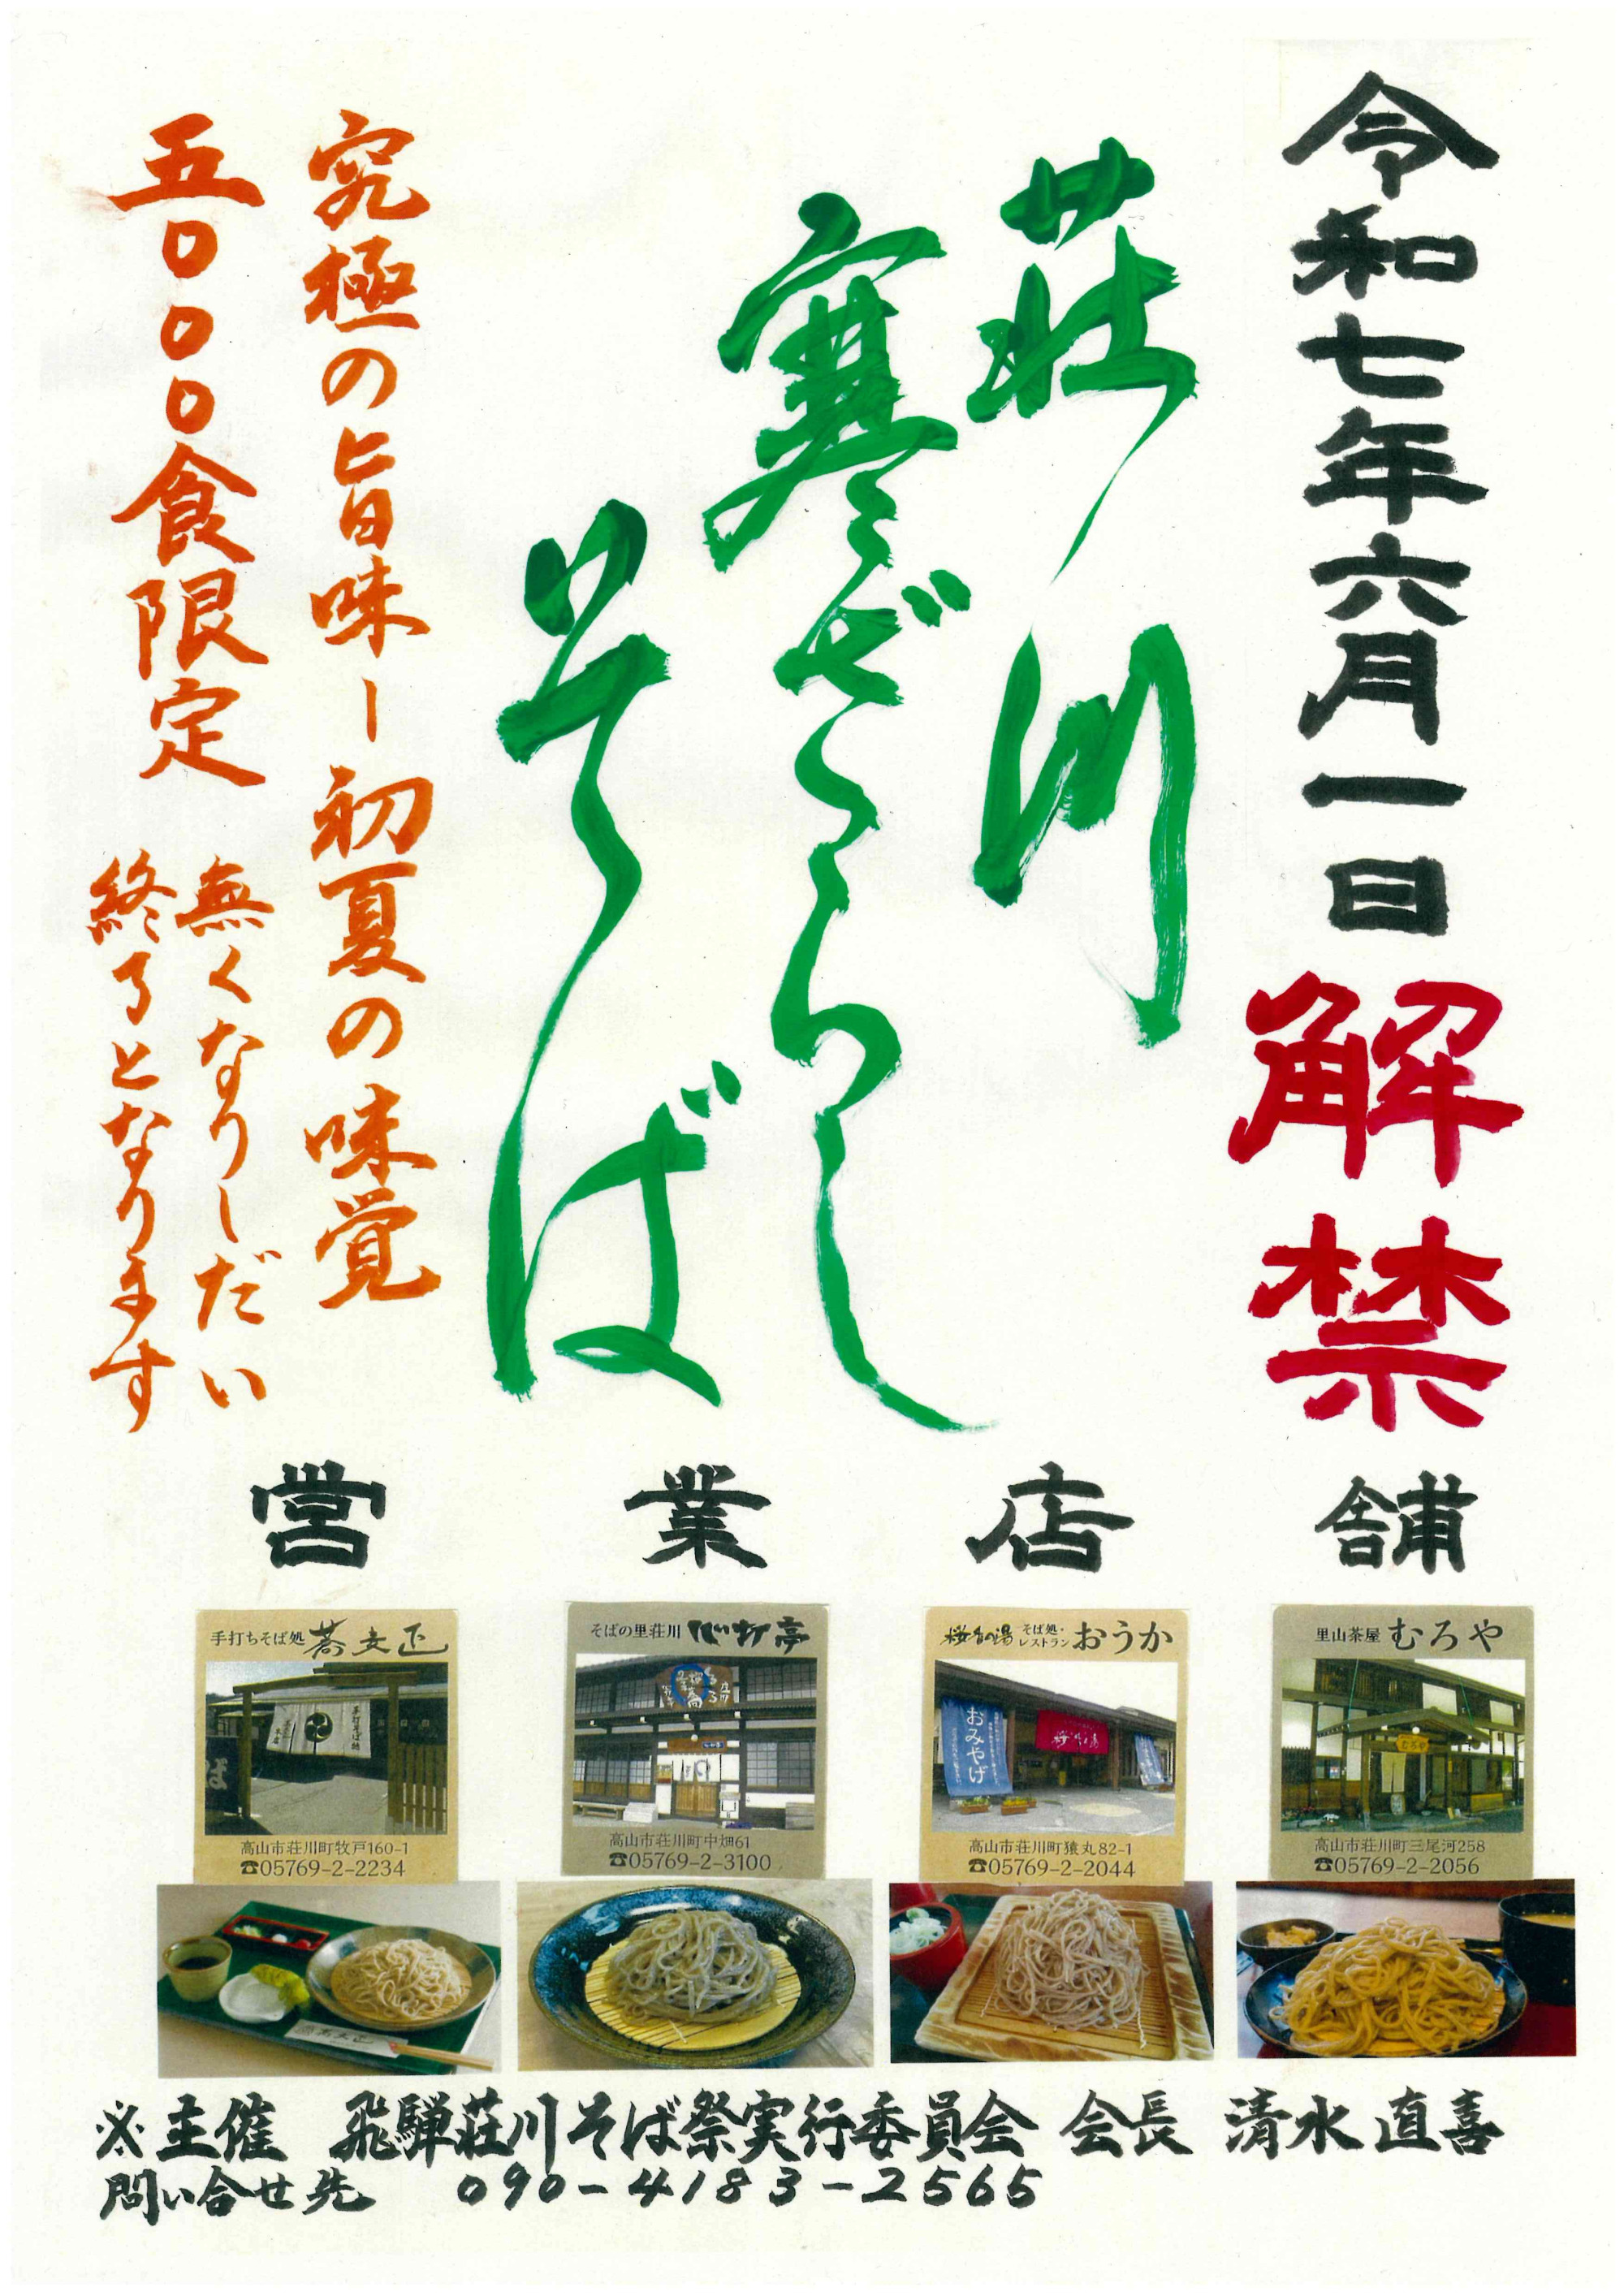 令和七年六月一日解禁
荘川
寒ざらし
そば
究極の旨味ー初夏の味覚
五〇〇〇食限定
無くなりしだい
終了となります
営業店舗
手打ちそば処 蕎麦正
高山市荘川町牧戸160-1
☎05769-2-2234
そばの里荘川 心打亭
高山市荘川町中畑61
☎05769-2-3100
桜香の湯 そば処・レストラン おうか
おみやげ
高山市荘川町猿丸82-1
☎05769-2-2044
里山茶屋 むろや
むろや
高山市荘川町三尾河258
☎05769-2-2056
※主催 飛騨荘川そば祭実行委員会 会長 清水直喜
問い合せ先 090-4183-2565